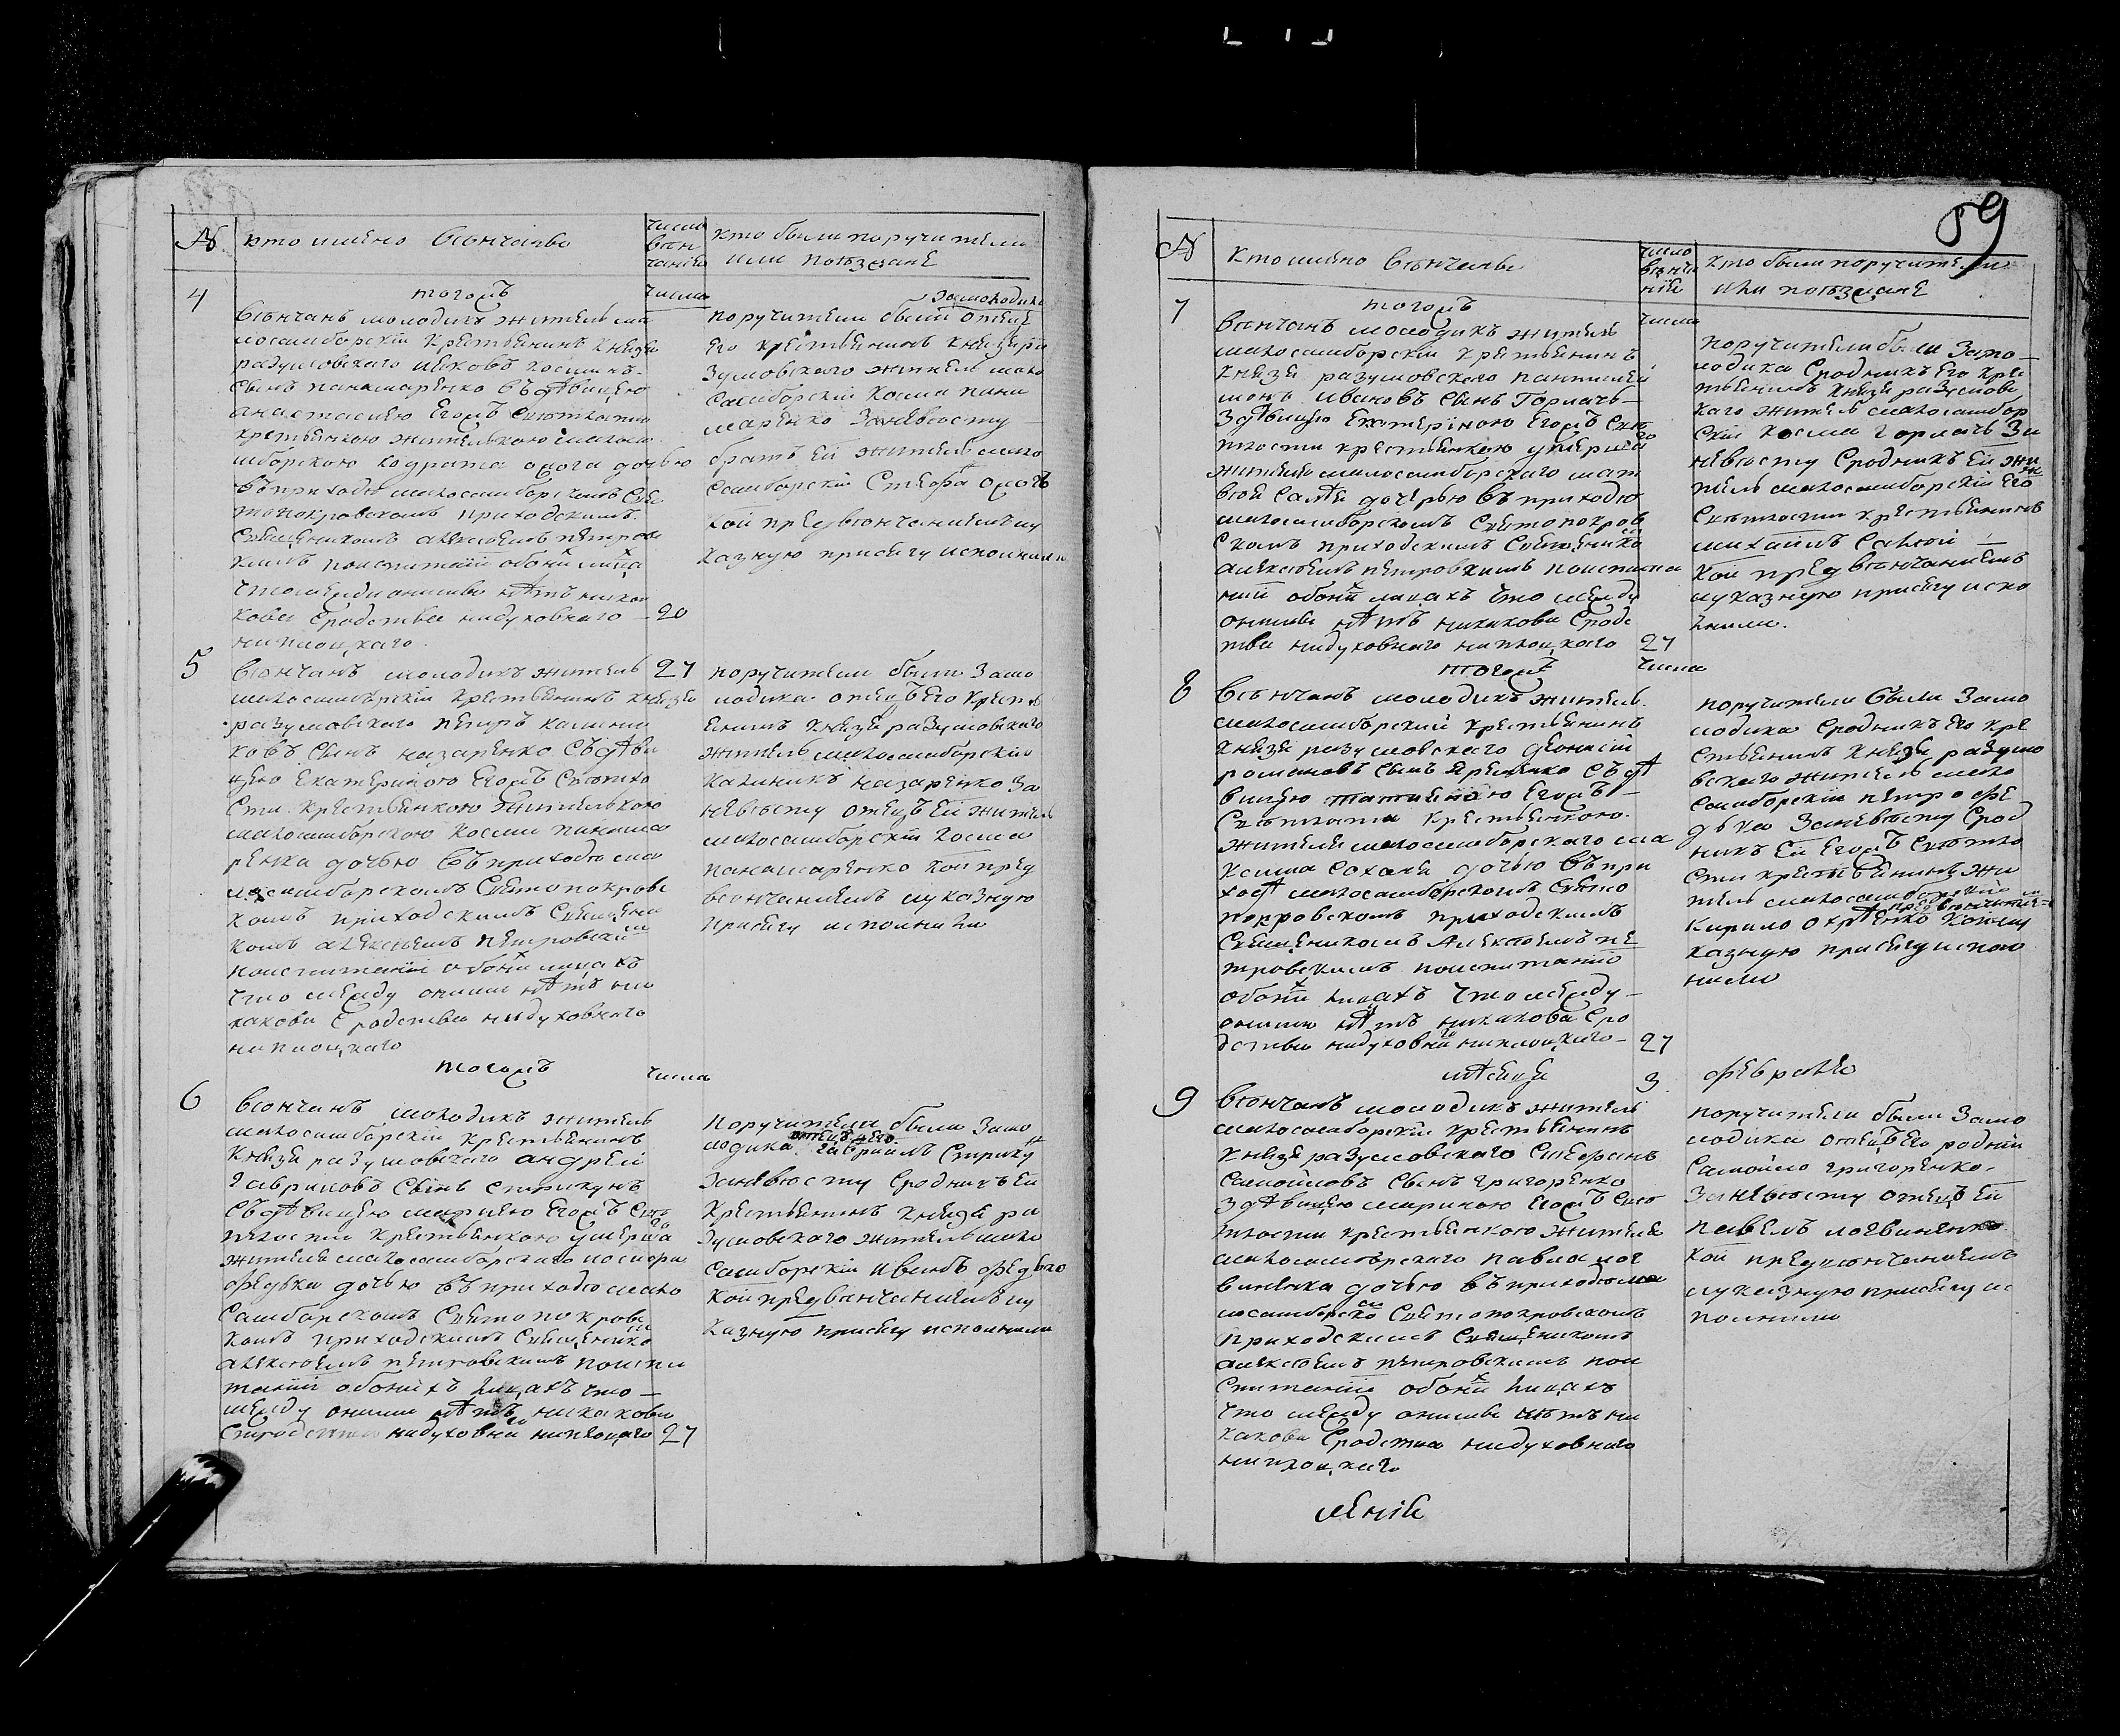 № кто имено венчанъ
число вѣнчаніи
кто были поручители
или поѣзжане
4
тогожъ
числа
вѣнчанъ молодикъ житель ма
лосамборскій крестьянинъ князя
разумовского яковъ косминъ
сынъ панамаренко съ дѣвицею
анастасиею Егожъ Свѣтлости
крестьянкою жителькою малоса
мборскою кодрата дочью
въ приходѣ малосамборскомъ Свя
топокровскомъ приходскимъ
Священикомъ алексѣемъ петровс
кимъ поиспитаніи обоихъ лицахъ
что между оними нѣтъ ника
кова сродства нидуховного
ниплоцкаго
20
поручители были замолодика отецъ
Его крестьянинъ князя ра
зумовского житель мало
самборскій косма пана
маренко Заневѣсту
братъ Ей житель мало
самборскій Стефа
кои предвѣнчаниемъ у
казную присягу исполнили
5
вѣнчанъ молодикъ житель
малосамборскій крестьянинъ князя
разумовского петръ калини
ковъ сынъ назаренко съ дѣви
цею Екатериною Егожъ Свѣтло
сти крестьянкою жителькою
малосамборскою космы панама
ренка дочью въ приходѣ ма
лосамборскомъ Святопокровс
комъ приходскимъ Священи
комъ алексѣемъ петровским
поиспитаніи обоих лицахъ
что между оними нѣтъ ни
какова сродства нидуховнаго
ниплоцкаго
27
поручители были Замо
лодика отецъ Его крестя
енинъ князя разумовского
житель малосамборскій
калиникъ назаренко За
невѣсту отецъ Ей житель
малосамборскій косма
панамаренко кои пред
вѣнчаниемъ указную
присягу исполнили
тогожъ
числа
6
вѣнчанъ молодикъ житель
малосамборскій крестьянинъ
князя разумовского андрей
гавриловъ сынъ стрикунъ
съ дѣвицею мариею Егожъ Свѣ
тлости крестьянкою умершаго
жителя малосамборского
федька дочью въ приходѣ мало
самборскомъ Святопокровс
комъ приходскимъ Священико
алексѣемъ петровскимъ поиспи
таніи обоихъ лицахъ что
между оними нѣтъ никакова
сродства нидуховна ниплоцкаго
27
Поручители были Замо
лодика отецъ Его гаврилъ Стрикун
Заневѣсту Сродникъ Ей
крестьянинъ князя ра
зумовского житель мало
самборскій иванъ федько
кои предвѣнчаниемъ у
казную присягу исполнили
89
№ кто имено вѣнчанъ
число вѣнчаніи
кто были поручители
или поѣзжане
7
тогожъ
числа
вѣнчанъ молодикъ житель
малосамборскій крестьянинъ
князя разумовского пантилей
монъ ивановъ сынъ Горлачъ
Здѣвицею Екатериною Егожъ Свѣ
тлости крестьянкою умершаго
жителя малосамборского мат
вѣя дочерью въ приходѣ
малосамборскомъ Святопокров
скомъ приходскимъ Священико
алексѣемъ петровскимъ поиспита
нии обоних лицахъ что между
онимы нѣтъ никакова срод
тва нидуховнаго ниплоцкого
27
поручители были Замо
лодика Сродникъ Его кре
тьянинъ князя разумовс
каго житель малосамбор
скій косма горлачъ За
невѣсту Сродникъ Ей жи
тель малосамборскій Его
Свѣтлости крестьянинъ
михаилъ
кои предвѣнчаниемъ
указную присягу испо
лнили.
тогожъ
числа
8
вѣнчанъ молодикъ житель
малосамборскій крестьянинъ
князя разумовского
романовъ сынъ Яременко съ дѣ
вицею татияною Егожъ
Свѣтлости крестьянкою
жителя малосамборского ма
ксима дочью въ при
ходѣ малосамборскомъ Свято
покровскомъ приходскимъ
Священикомъ Алексѣемъ пе
тровскимъ поиспитаніи
обоних лицахъ что между
оними нѣтъ никакова сро
дства нидуховнаго ниплоцкаго
27
поручители были Замо
лодика сродникъ Его кре
стьянинъ князя разумо
вского житель мало
самборскій петро фе
дько Заневѣсту Срод
никъ Ей Егожъ Свѣтло
сти крестьянинъ жи
тель малосамборскій
кирило кои предвѣнчание у
казную присягу испол
нили
мѣсяца
3
февраля
9
вѣнчанъ молодикъ житель
малосамборскій крестьянинъ
князя разумовского Стефанъ
Самойловъ сынъ григоренко
Здѣвицею мариною Егожъ Свѣ
тлости крестьянкою жителя
малосамборского павла лог
виненка дочью въ приходѣ ма
лосамборско Святопокровскомъ
приходскимъ Священикомъ
алексѣемъ петровскимъ пои
спитаніи обоних лицахъ
что между онимы нѣтъ ни
какова сродства нидуховнаго
ниплоцкаго
поручители были Замо
лодика отецъ Его родній
Самойло григоренко
Заневѣсту отецъ Ей
павелъ логвиненко
кои предвѣнчаниемъ
указную присягу ис
полнили